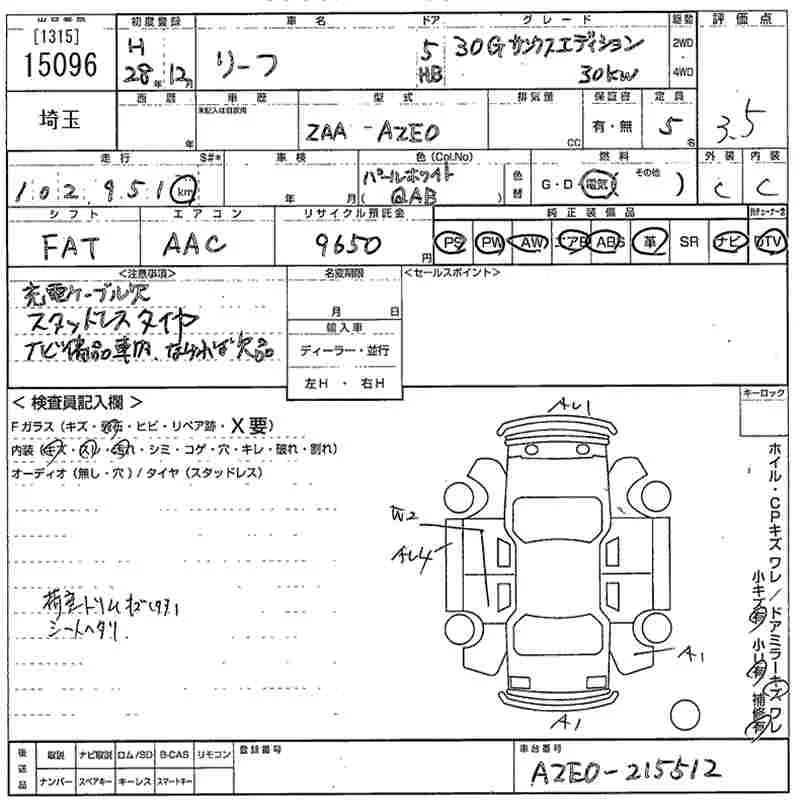 [1315]
15096
初度登録
車名
ドア
グレード
駆動
評価点
H
28年 12月
リーフ
5
HB
30Gサンクスエディション
30kw
2WD
4WD
3.5
埼玉
西暦
年
車歴
型式
ZAA-AZE0
排気量
CC
保証書
有・無
定員
5名
走行
S#*
102,951 km
車検
年 月
色(Col.No)
パールホワイト
(QAB)
色替
燃料
G・D・電気( その他 )
外装
C
内装
C
シフト
FAT
エアコン
AAC
リサイクル預託金
9650円
純正装備品
PS PW AW エアB ABS 革 SR ナビ DTV
<注意事項>
充電ケーブル欠
スタッドレスタイヤ
ナビ備品車内、なければ欠品
名変期限
月 日
輸入車
ディーラー・並行
左H・右H
<セールスポイント>
< 検査員記入欄 >
Fガラス(キズ・飛石・ヒビ・リペア跡・X要)
内装(キズ・スレ・汚れ・シミ・コゲ・穴・キレ・破れ・割れ)
オーディオ(無し・穴)/タイヤ(スタッドレス)
シートヘタリ
AU1
W2
AU4
A1
A1
キーロック
ホイル・CPキズ ワレ/ドアミラーキズ ワレ
小キズ有 小U有 補修有
後送品
取説 ナビ取説 ロム/SD B-CAS リモコン
ナンバー スペアキー キーレス スマートキー
登録番号
車台番号
AZE0-215512